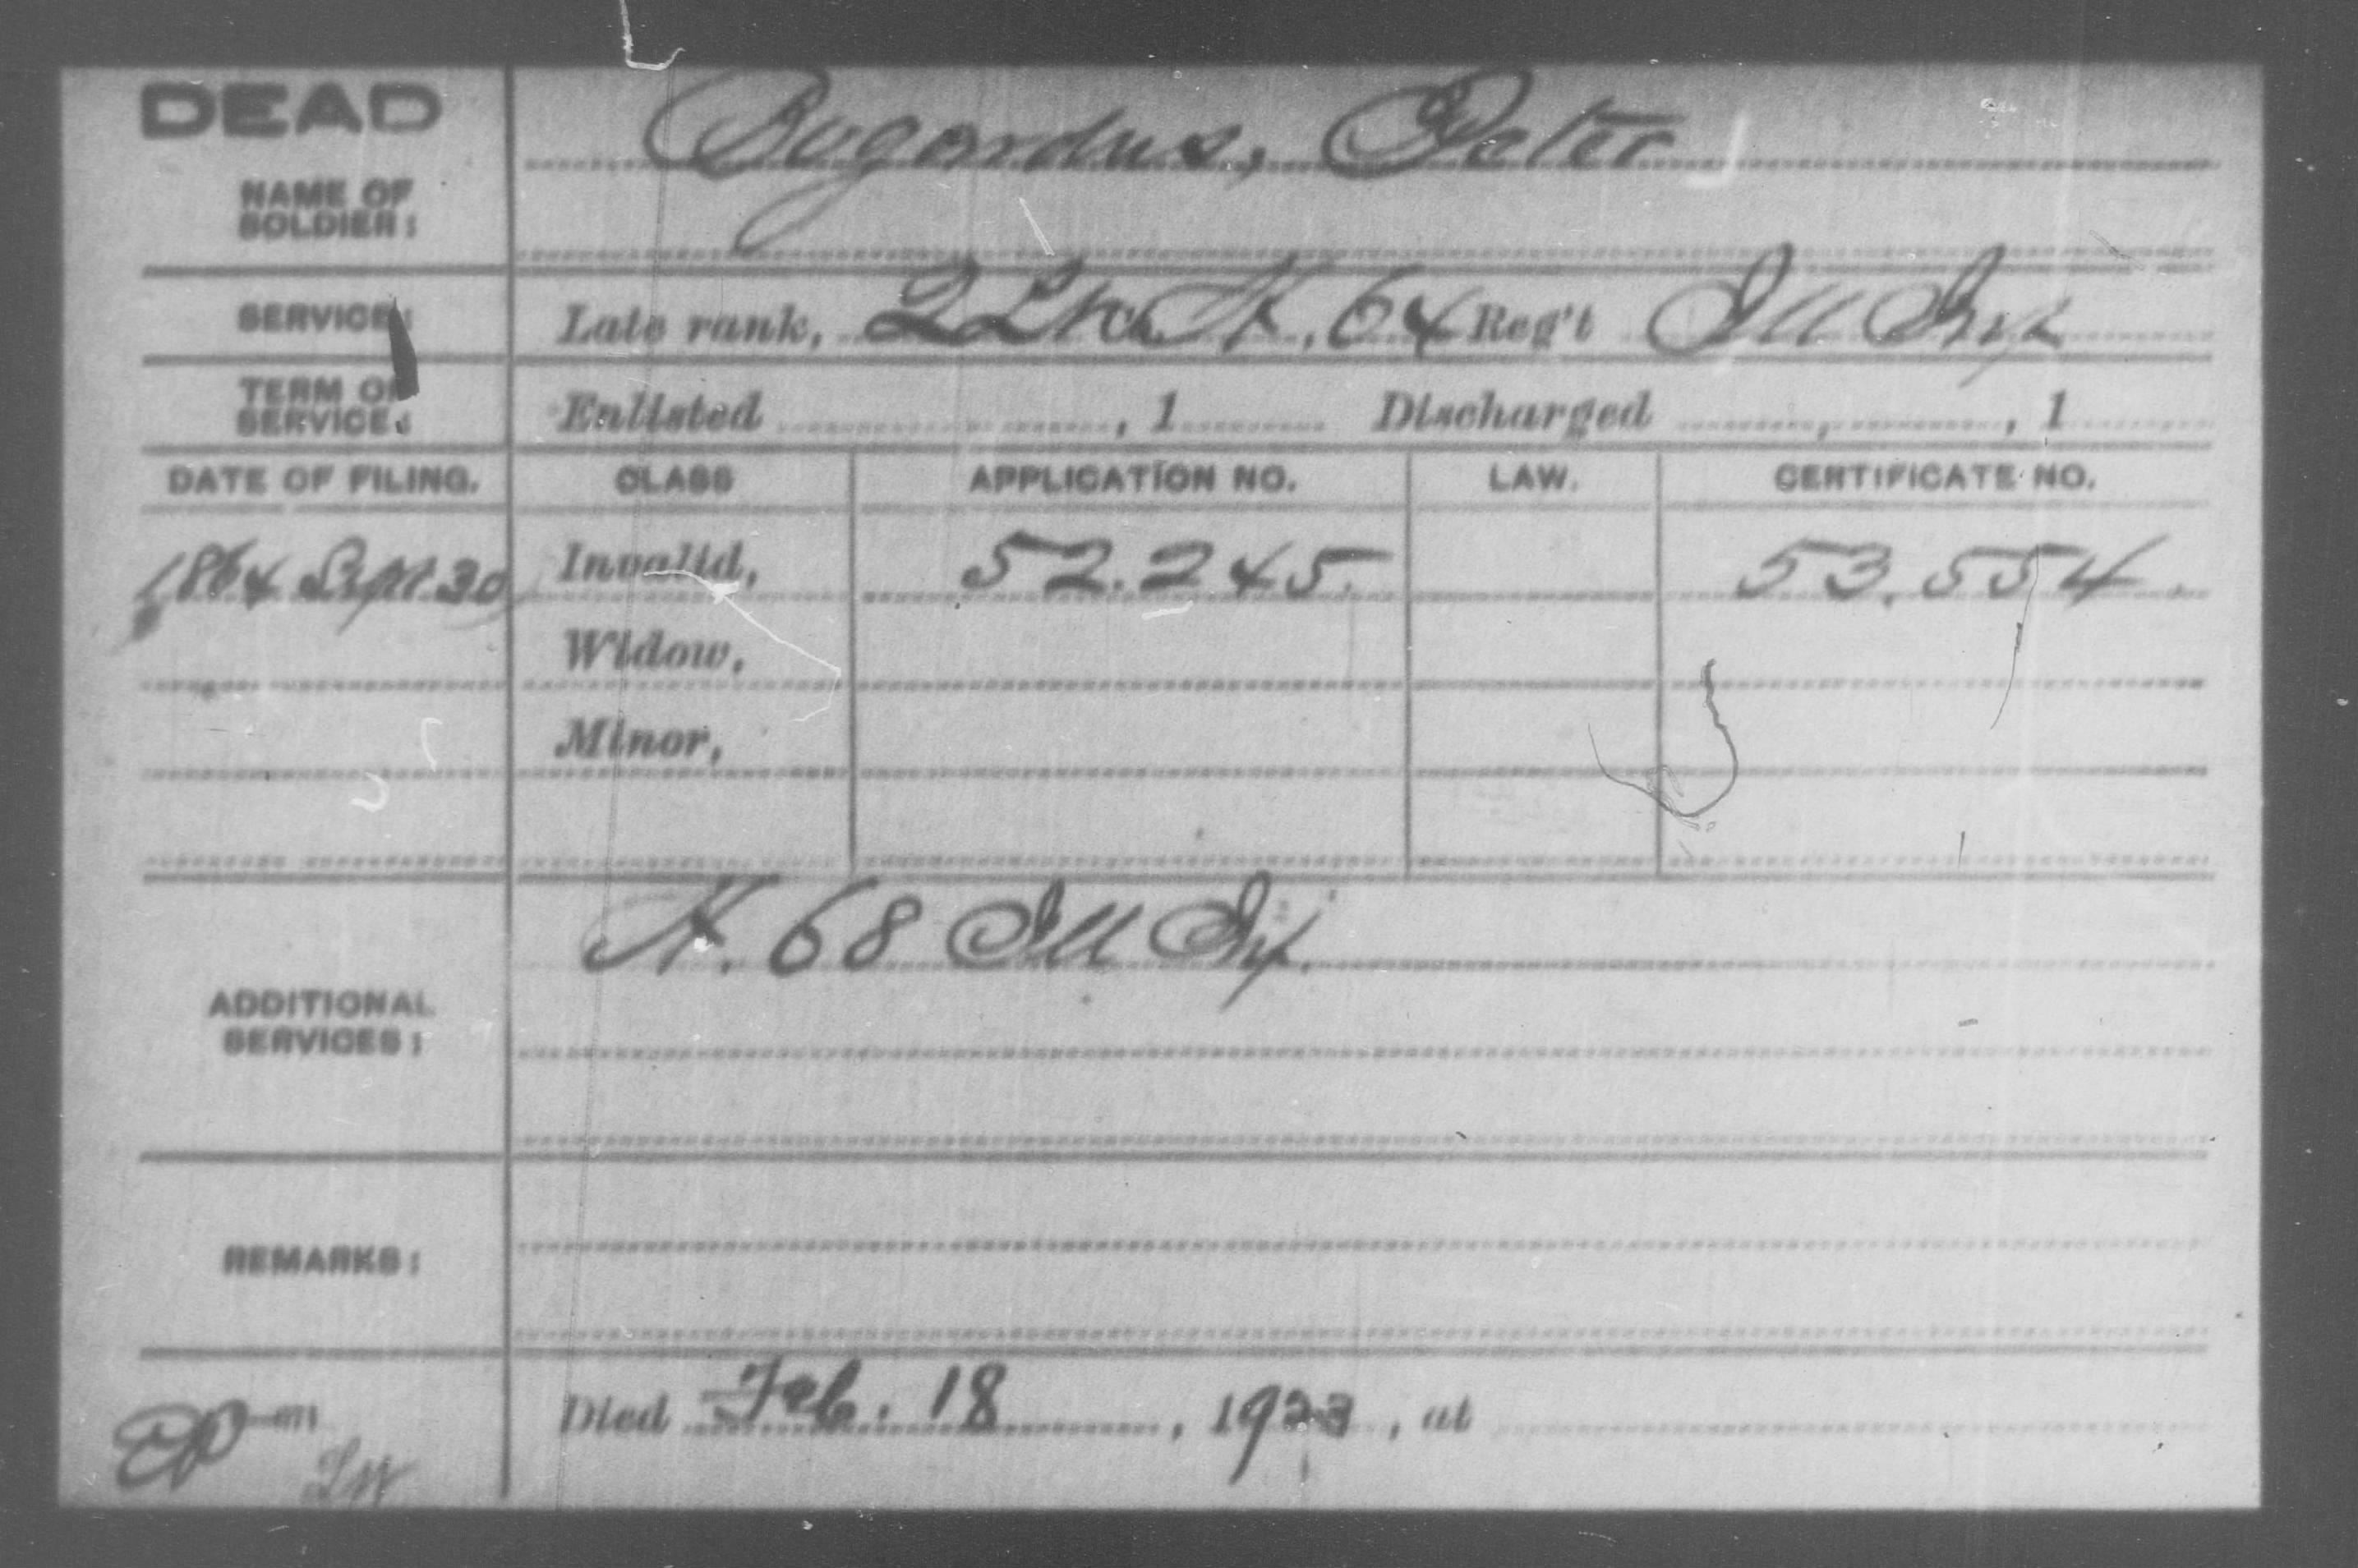 DEAD
Bogardus, Peter
NAME OF
SOLDIER:
SERVICE: Late rank, 2 Lt Co. K, 64 Reg't Ill Inf
TERM OF
SERVICE: Enlisted , 1 Discharged , , 1
DATE OF FILING. CLASS APPLICATION NO. LAW. CERTIFICATE NO.
1864 Sept. 30 Invalid, 52.245. 53.554.
Widow,
Minor,
K. 68 Ill Inf.
ADDITIONAL
SERVICES:
REMARKS:
Died Feb. 18, 1923, at